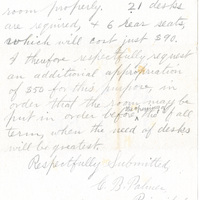 room properly. 21 desks
are required, & 6 rear seats,
which will cost just $90.
I therefore respectfully request
an additional appropriation
of $50 for this purpose, in
order that the room may be
put in order before the fall
term, when the need of desks
will be greatest.
Respectfully Submitted,
G. B. Palmer